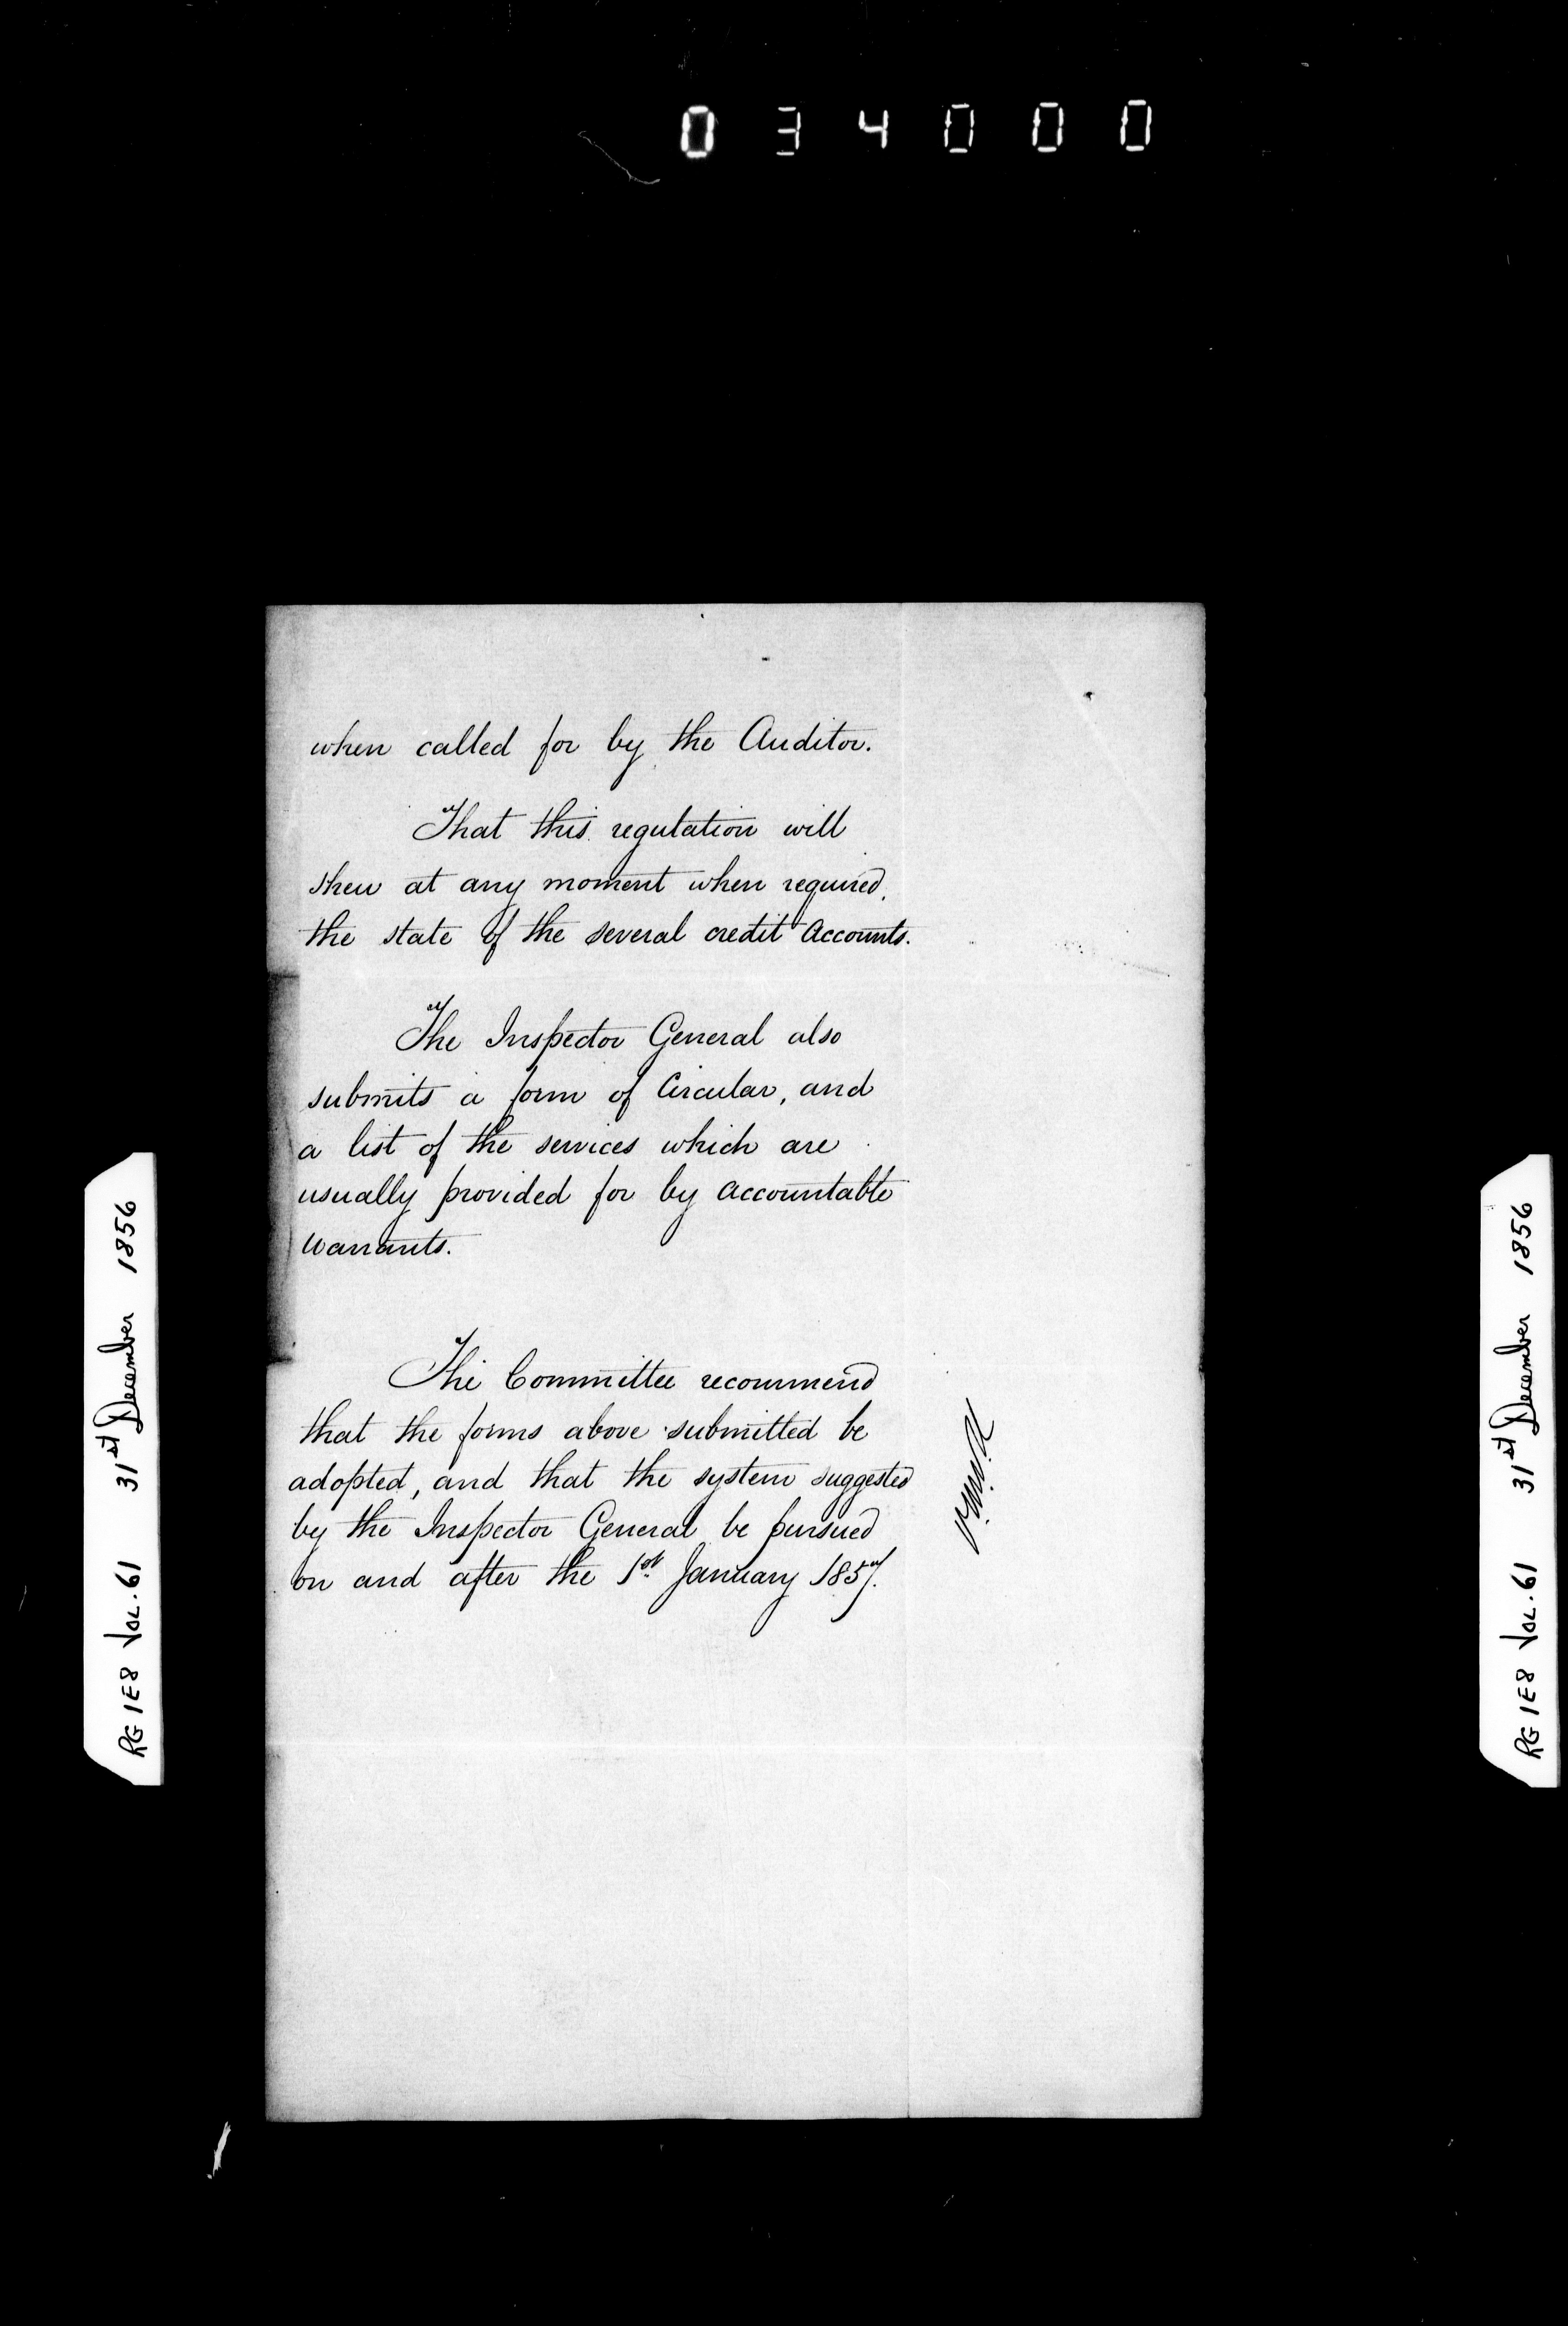 034000
when called for by the Auditor.
That this regulation will
shew at any moment when required,
the state of the several credit Accounts.
The Inspector General also
submits a form of Circular, and
a list of the services which are
usually provided for by accountable
Warrants.
The Committee recommend
that the forms above submitted be
adopted, and that the system suggested
by the Inspector General be pursued
on and after the 1st January 1857.
RG 1E8 VOL.61 31st December 1856
RG 1E8 VOL.61 31st December 1856